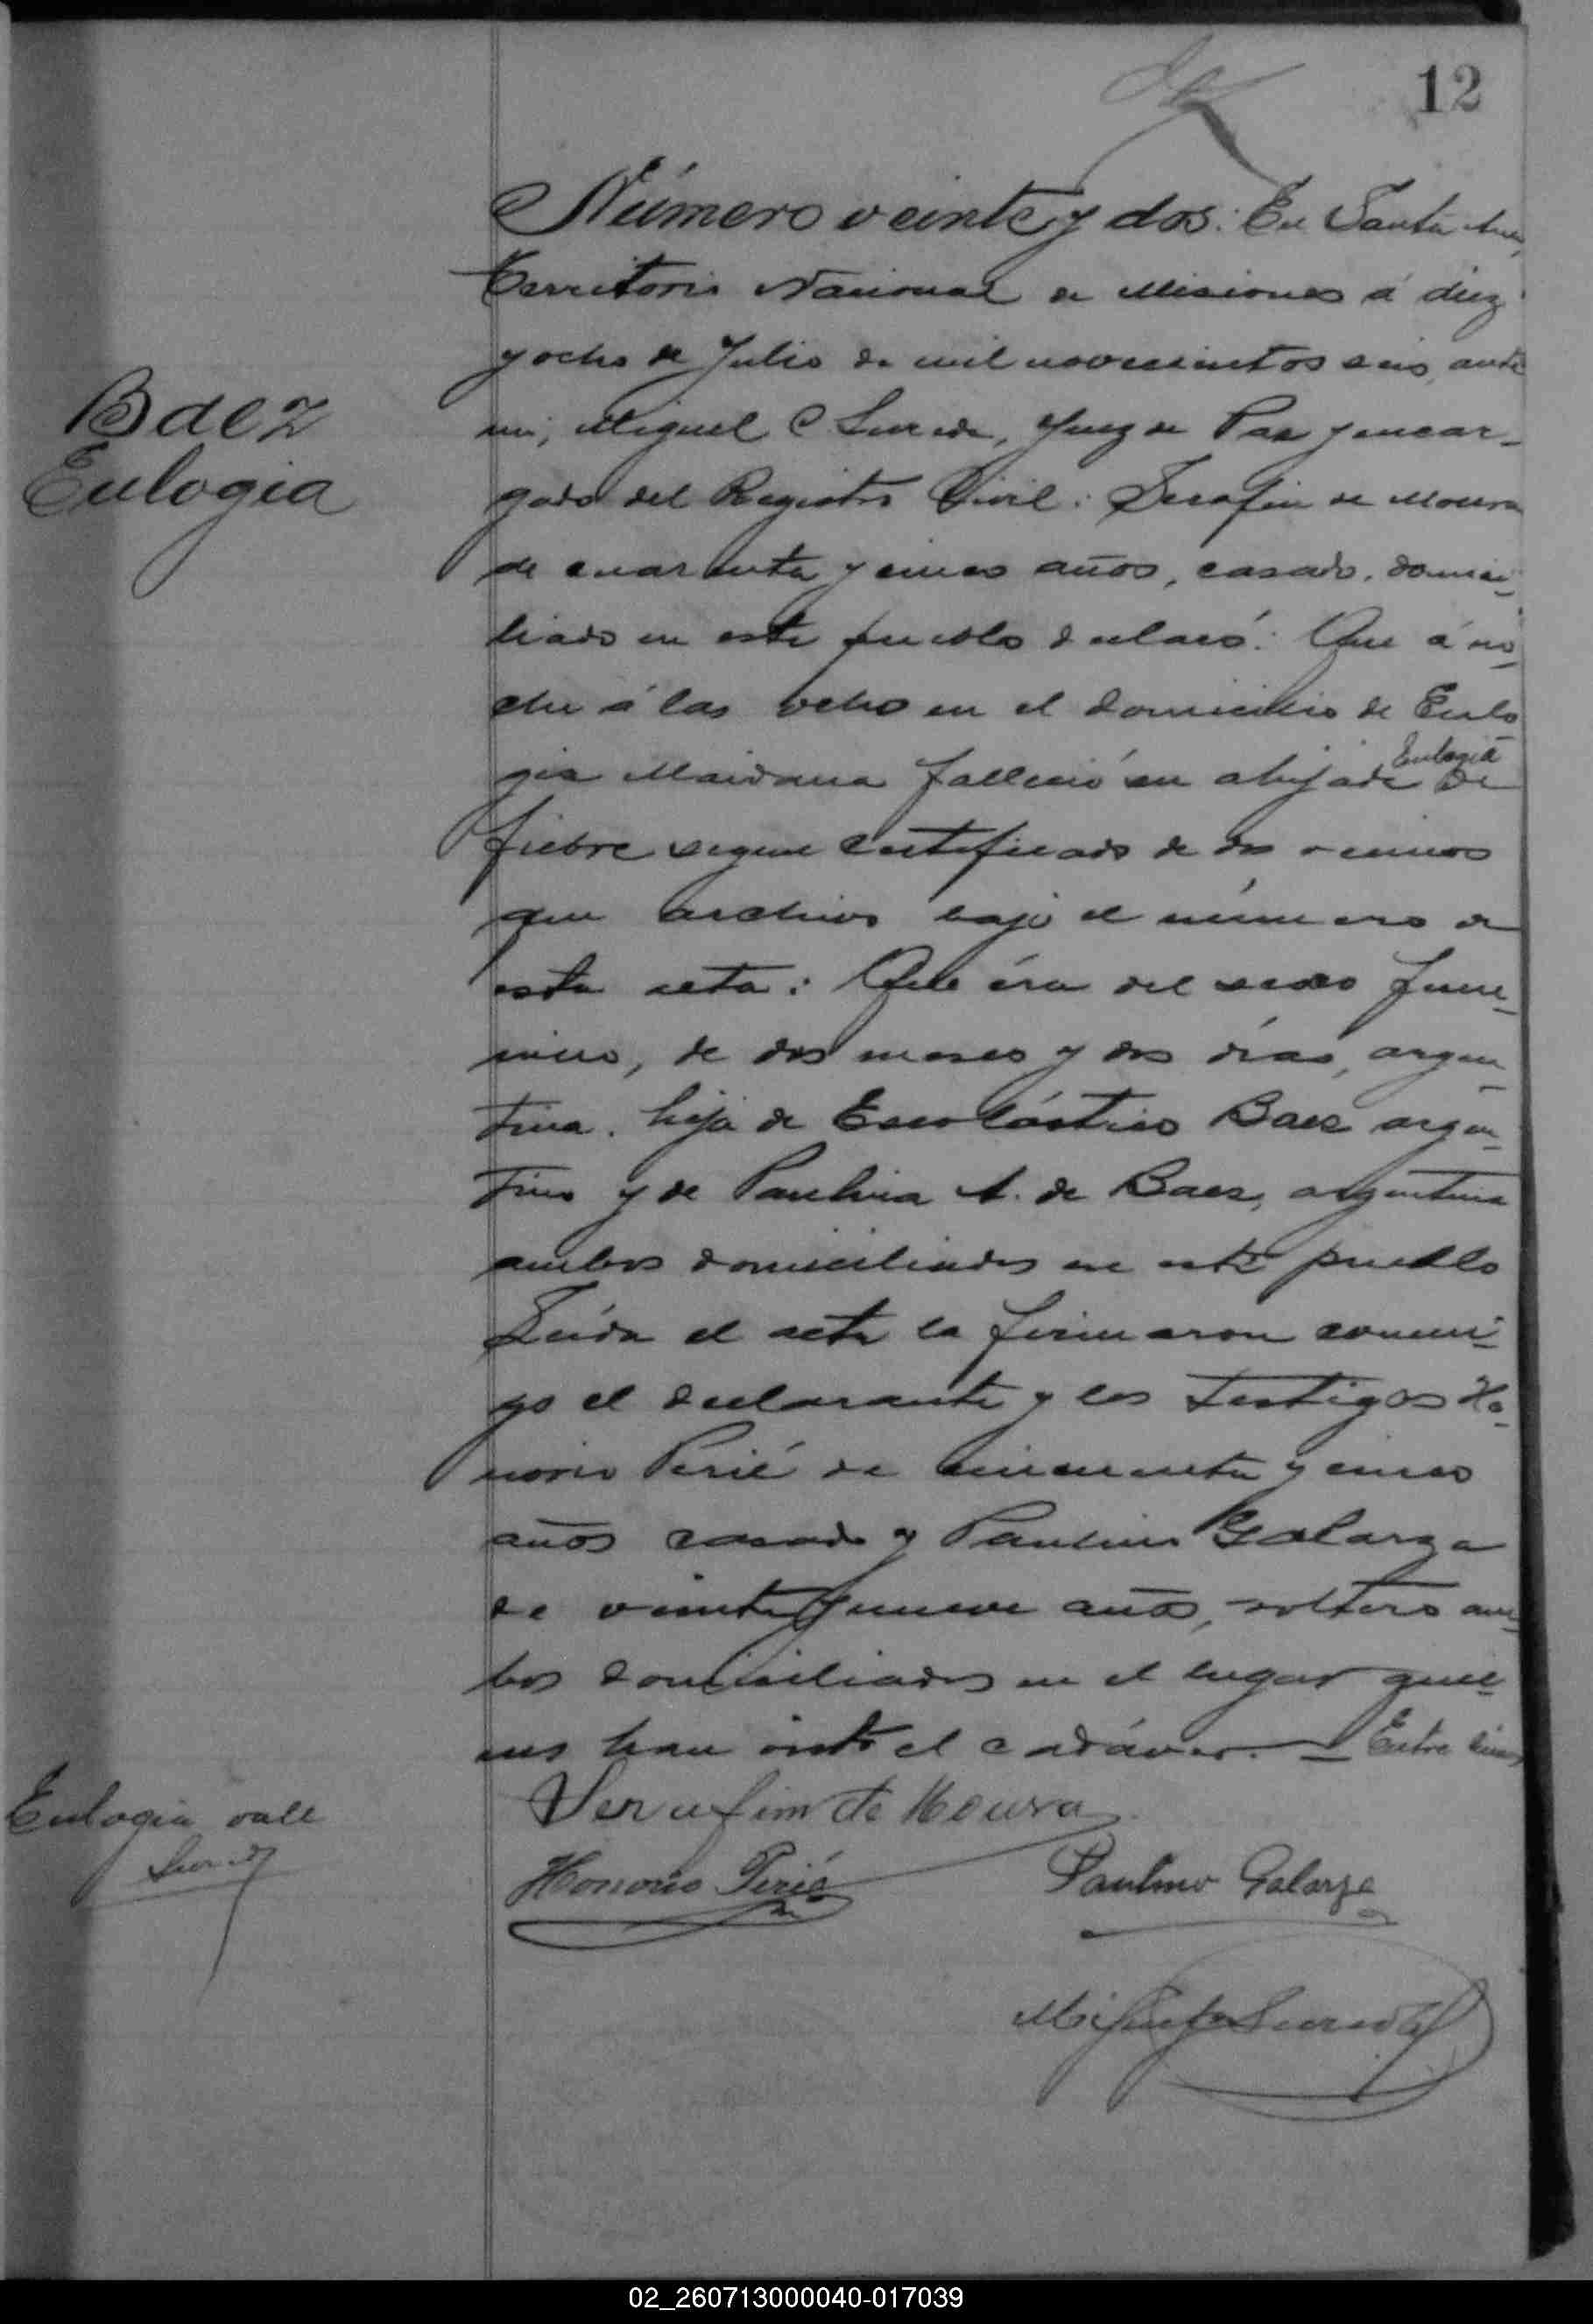 12
Número veinte y dos: En Santa Ana,
Territorio Nacional de Misiones á diez
y ocho de Julio de mil novecientos seis, ante
Baez
mi, Miguel C. Sureda, Juez de Paz y encar-
Eulogia
gado del Registro Civil: Serafin de Moura
de cuarenta y cinco años, casado, domici-
liado en este pueblo declaró: Que á no-
che á las ocho en el domicilio de Eulo-
gia Maidana falleció su ahijada Eulogia de
fiebre segun certificado de dos vecinos
que archivo bajo el número de
esta acta: Que éra del sexo feme-
nino, de dos meses y dos días, argen-
tina. hija de Escolástico Baez argen-
tino y de Paulina A. de Baez, argentina
ambos domiciliados en este pueblo
Leida el acta la firmaron conmi-
go el declarante y los testigos Ho-
norio Perié de cincuenta y cinco
años casado y Paulino Galarza
de veinte y nueve años, soltero am-
bos domiciliados en el lugar quie-
nes han visto el cadáver. — Entre lineas
Eulogia vale
Sureda
Serafim de Moura
Honorio Perié
Paulino Galarza
Miguel C. Sureda
02_260713000040-017039